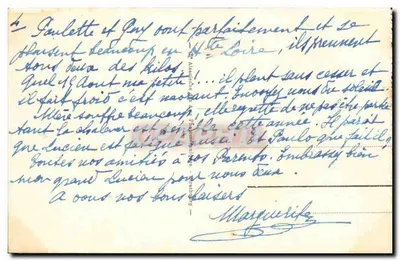 4
Paulette et Guy vont parfaitement et se
plaisent beaucoup en Hte Loire, ils prennent
tous deux des kilos.
Quel 15 Août ma petite !... il pleut sans cesser et
il fait froid c'est navrant. Envoyez nous du soleil.
Mère souffre beaucoup, elle regrette de ne pas être partie
tant la chaleur est cette année. Il paraît
que Lucien est fatigué aussi. Et Paulo que fait il ?
Toutes nos amitiés à vos Parents. Embrassez bien
mon grand Lucien pour nous deux.
A vous nos bons baisers
Marguerite